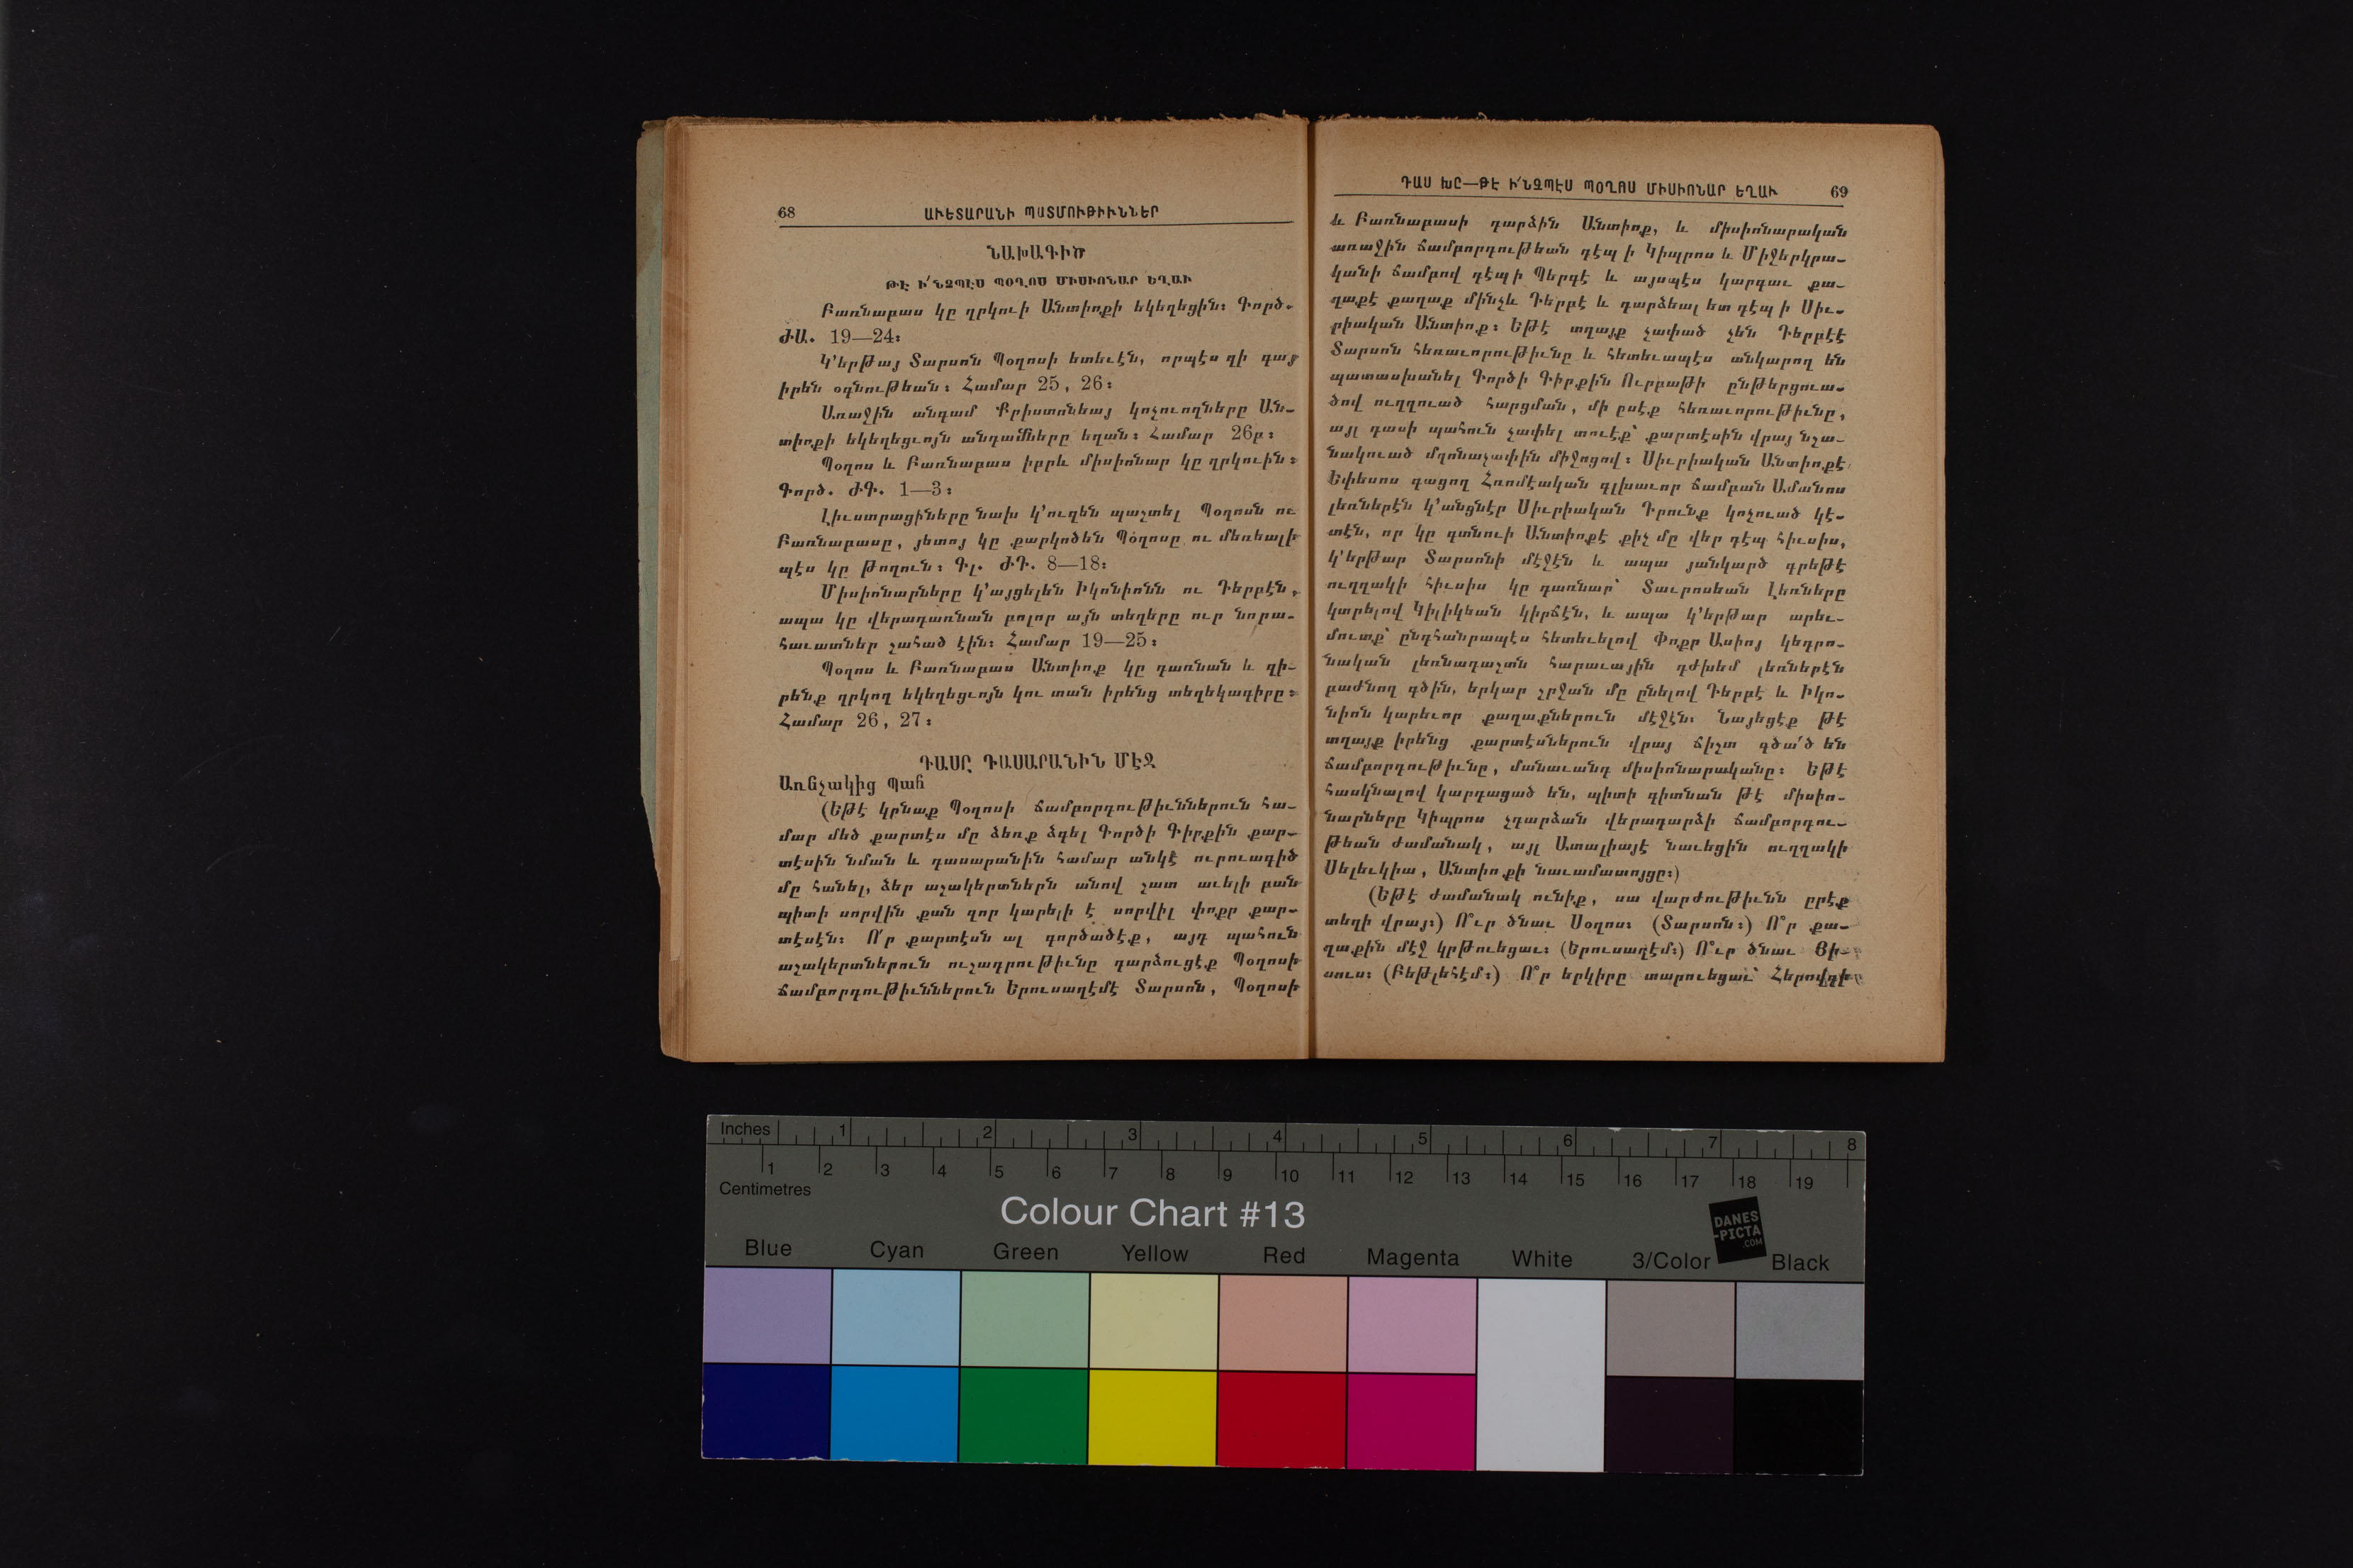 68 ԱՒԵՏԱՐԱՆԻ ՊԱՏՄՈՒԹԻՒՆՆԵՐ
ՆԱԽԱԳԻԾ
ԹԷ Ի՛ՆՉՊԷՍ ՊՕՂՈՍ ՄԻՍԻՈՆԱՐ ԵՂԱՒ
Բառնաբաս կը ղրկուի Անտիոքի եկեղեցին։ Գործ.
ԺԱ. 19—24։
Կ'երթայ Տարսոն Պօղոսի ետեւէն, որպէս զի գայ
իրեն օգնութեան։ Համար 25, 26։
Առաջին անգամ Քրիստոնեայ կոչուողները Ան-
տիոքի եկեղեցւոյն անդամները եղան։ Համար 26բ։
Պօղոս և Բառնաբաս իբրև միսիոնար կը ղրկուին։
Գործ. ԺԳ. 1—3։
Լիւստրացիները նախ կ'ուզեն պաշտել Պօղոսն ու
Բառնաբասը, յետոյ կը քարկոծեն Պօղոսը ու մեռեալի
պէս կը թողուն։ Գլ. ԺԴ. 8—18։
Միսիոնարները կ'այցելեն Իկոնիոնն ու Դերբէն,
ապա կը վերադառնան բոլոր այն տեղերը ուր նորա-
հաւատներ շահած էին։ Համար 19—25։
Պօղոս և Բառնաբաս Անտիոք կը դառնան և զի-
րենք ղրկող եկեղեցւոյն կու տան իրենց տեղեկագիրը։
Համար 26, 27։
ԴԱՍԸ ԴԱՍԱՐԱՆԻՆ ՄԷՋ
Առնչակից Պահ
(Եթէ կրնաք Պօղոսի ճամբորդութիւններուն հա-
մար մեծ քարտէս մը ձեռք ձգել Գործի Գիրքին քար-
տէսին նման և դասարանին համար անկէ ուրուագիծ
մը հանել, ձեր աշակերտներն անով շատ աւելի բան
պիտի սորվին քան զոր կարելի է սորվիլ փոքր քար-
տէսէն։ Ո՛ր քարտէսն ալ գործածէք, այդ պահուն
աշակերտներուն ուշադրութիւնը դարձուցէք Պօղոսի
ճամբորդութիւններուն Երուսաղէմէ Տարսոն, Պօղոսի
ԴԱՍ ԽԸ—ԹԷ Ի՛ՆՉՊԷՍ ՊՕՂՈՍ ՄԻՍԻՈՆԱՐ ԵՂԱՒ 69
և Բառնաբասի դարձին Անտիոք, և միսիոնարական
առաջին ճամբորդութեան դէպ ի Կիպրոս և Միջերկրա-
կանի ճամբով դէպ ի Պերգէ և այսպէս կարգաւ քա-
ղաքէ քաղաք մինչև Դերբէ և դարձեալ ետ դէպ ի Սիւ-
րիական Անտիոք։ Եթէ տղայք չափած չեն Դերբէէ
Տարսոն հեռաւորութիւնը և հետեւապէս անկարող են
պատասխանել Գործի Գիրքին Ուրբաթի ընթերցուա-
ծով ուղղուած հարցման, մի ըսէք հեռաւորութիւնը,
այլ դասի պահուն չափել տուէք՝ քարտէսին վրայ նշա-
նակուած մղոնաչափին միջոցով։ Սիւրիական Անտիոքէ
Եփեսոս գացող Հռոմէական գլխաւոր ճամբան Ամանոս
լեռներէն կ'անցնէր Սիւրիական Դրունք կոչուած կէ-
տէն, որ կը գտնուի Անտիոքէ քիչ մը վեր դէպ հիւսիս,
կ'երթար Տարսոնի մէջէն և ապա յանկարծ գրեթէ
ուղղակի հիւսիս կը դառնար՝ Տաւրոսեան Լեռները
կտրելով Կիլիկեան կիրճէն, և ապա կ'երթար արեւ-
մուտք՝ ընդհանրապէս հետեւելով Փոքր Ասիոյ կեդրո-
նական լեռնադաշտն հարաւային դժխեմ լեռներէն
բաժնող գծին, երկար շրջան մը ընելով Դերբէ և Իկո-
նիոն կարեւոր քաղաքներուն մէջէն։ Նայեցէք թէ
տղայք իրենց քարտէսներուն վրայ ճիշտ գծա՛ծ են
ճամբորդութիւնը, մանաւանդ միսիոնարականը։ Եթէ
հասկնալով կարդացած են, պիտի գիտնան թէ միսիո-
նարները Կիպրոս չդարձան վերադարձի ճամբորդու-
թեան ժամանակ, այլ Ատալիայէ նաւեցին ուղղակի
Սելեւկիա, Անտիոքի նաւամատոյցը։)
(Եթէ ժամանակ ունիք, սա վարժութիւնն ըրէք
տեղի վրայ։) Ո՞ւր ծնաւ Սօղոս։ (Տարսոն։) Ո՞ր քա-
ղաքին մէջ կրթուեցաւ։ (Երուսաղէմ։) Ո՞ւր ծնաւ Յի-
սուս։ (Բեթլեհէմ։) Ո՞ր երկիրը տարուեցաւ՝ Հերովդի
Inches 1 2 3 4 5 6 7 8
1 2 3 4 5 6 7 8 9 10 11 12 13 14 15 16 17 18 19
Centimetres
Colour Chart #13
DANES
-PICTA
.COM
Blue Cyan Green Yellow Red Magenta White 3/Color Black